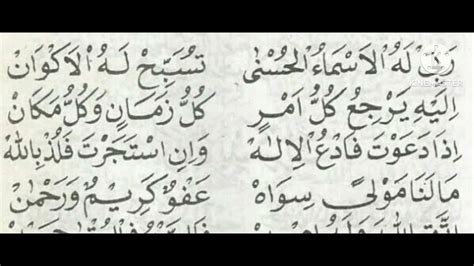 رَبٌّ لَهُ الْاَسْمَاءُ الْحُسْنٰى تُسَبِّحُ لَهُ الْاَكْوَانْ
اِلَيْهِ يَرْجِعُ كُلُّ اَمْرٍ كُلُّ زَمَانٍ وَكُلُّ مَكَانْ
اِذَا دَعَوْتَ فَادْعُ الْاِلٰهْ وَاِنِ اسْتَجَرْتَ فَلُذْ بِاللّٰهْ
مَالَنَا مَوْلًى سِوَاهْ عَفُوٌّ كَرِيْمٌ وَرَحْمٰنْ